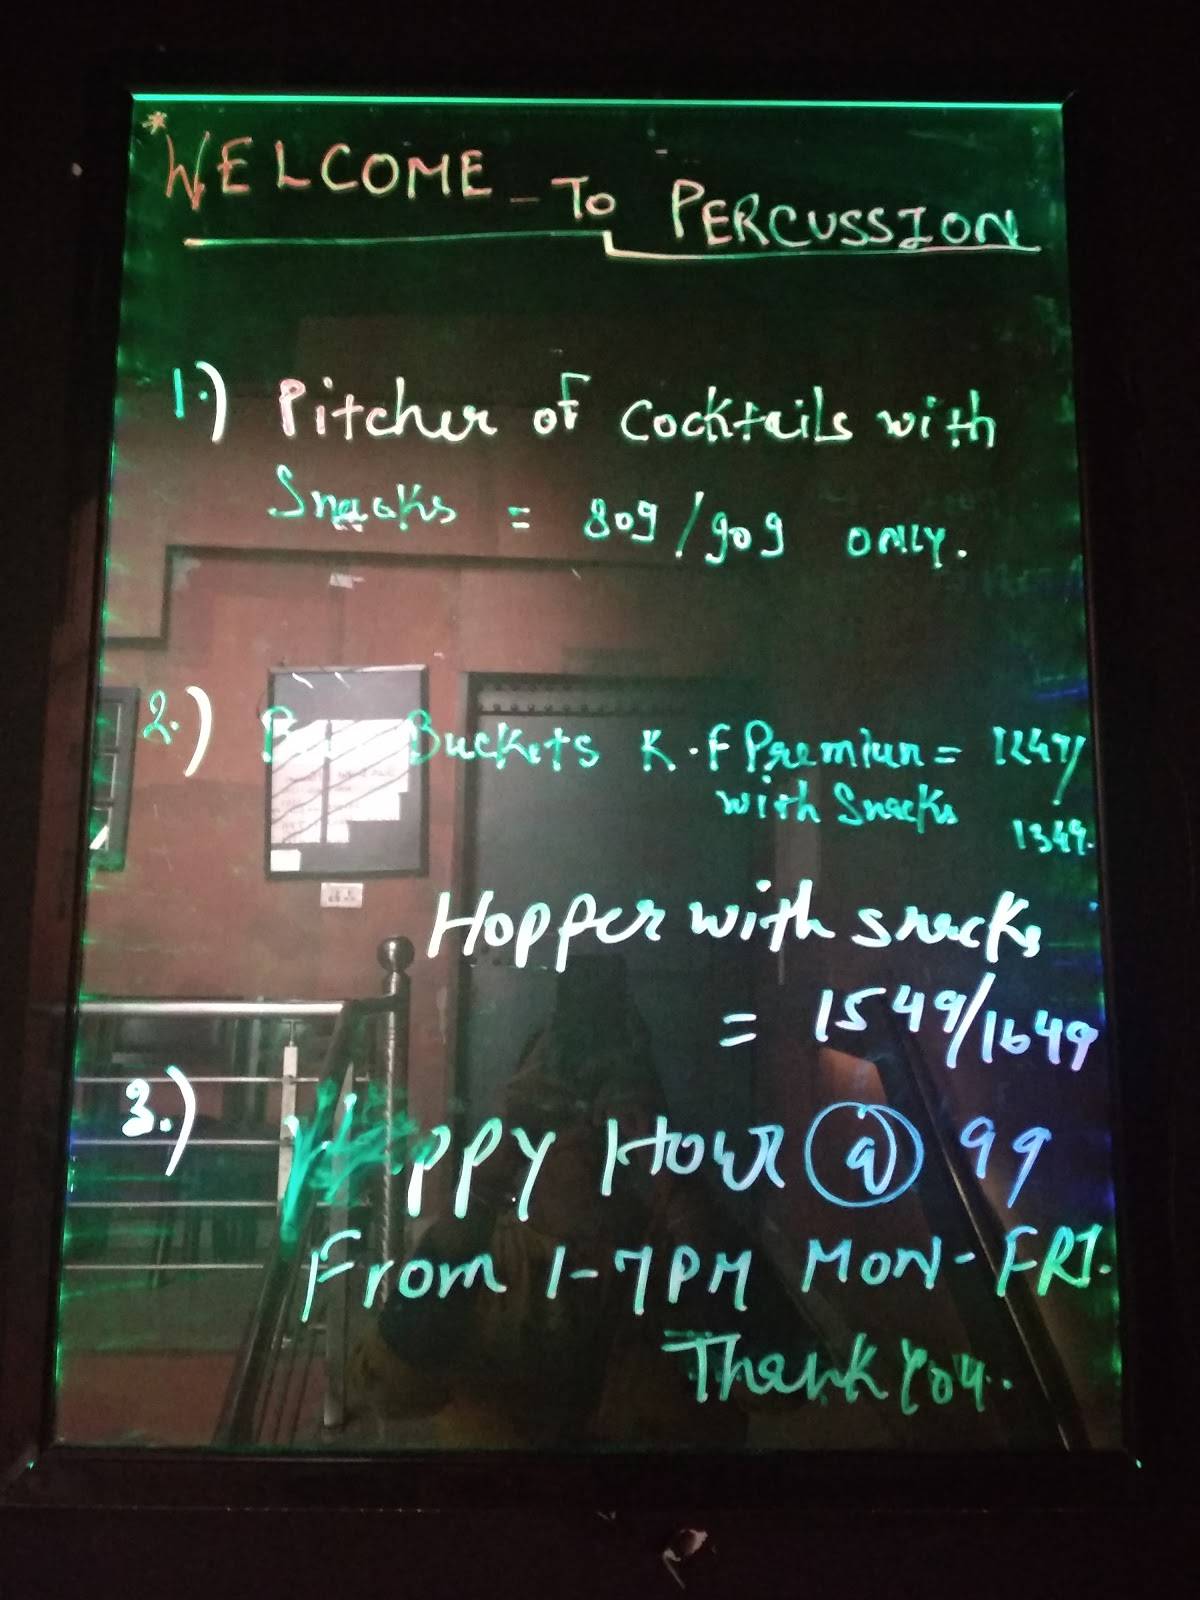 *WELCOME - To PERCUSSION
1.) Pitcher of Cocktails with
Snacks = 809/909 ONLY.
2.) Buckets K.F Premiun = 1249/
with Snacks 1349.
Hopper with snacks
= 1549/1649
3.) Happy Hour @ 99
From 1-7PM MON-FRI.
Thank You.